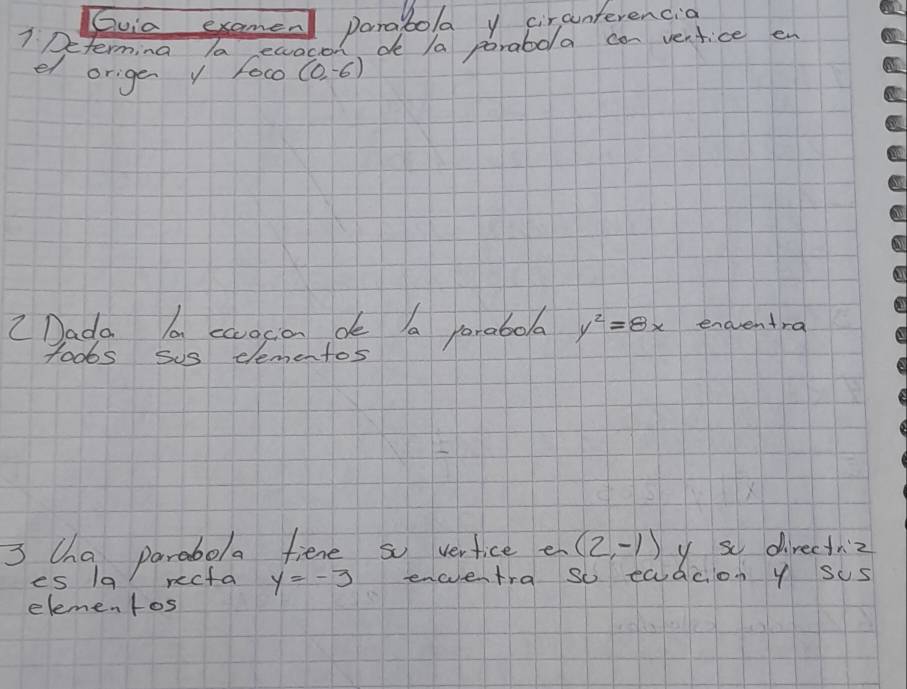 Guia examen parabola y circunferencia
1. Determina la ecuacion de la parabola con vertice en
el origen y foco (0,-6)
2 Dada la ecuacion de la parabola y²=8x encuentra
todos sus elementos
3 Una parabola tiene su vertice en (2,-1) y su directriz
es la recta y=-3 encuentra su ecuación y sus
elementos